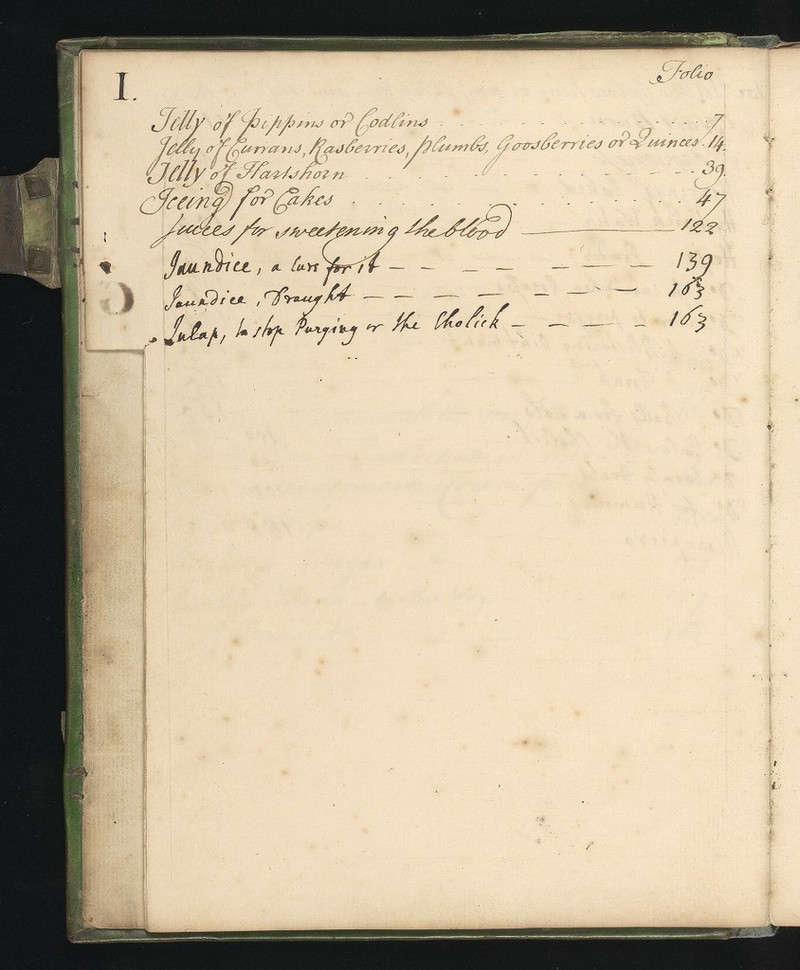 I.
Folio
Jelly of Pippins or Codlins 7
Jelly of Currans, Rasberries, plumbs, Goosberries or Quinces 14
Jelly of Hartshorn 39
Iceing for Cakes 47
Juices for sweetening the blood 122
Jaundice, a Cure for it 139
Jaundice, Draught 163
Julap, to stop Purging or the Cholick 163
G